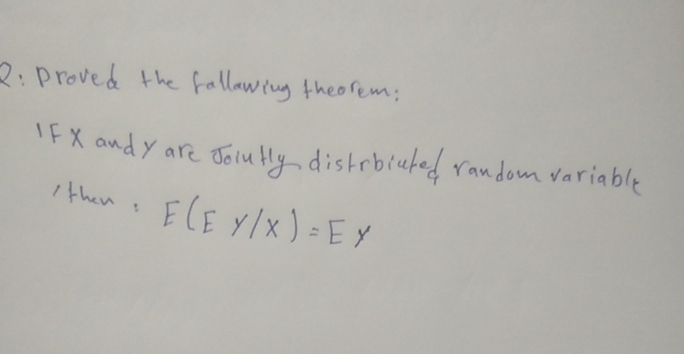 Q: Proved the following theorem:
IF X and y are Jointly distrbiuted random variable
, then : E(E y/x) = E y